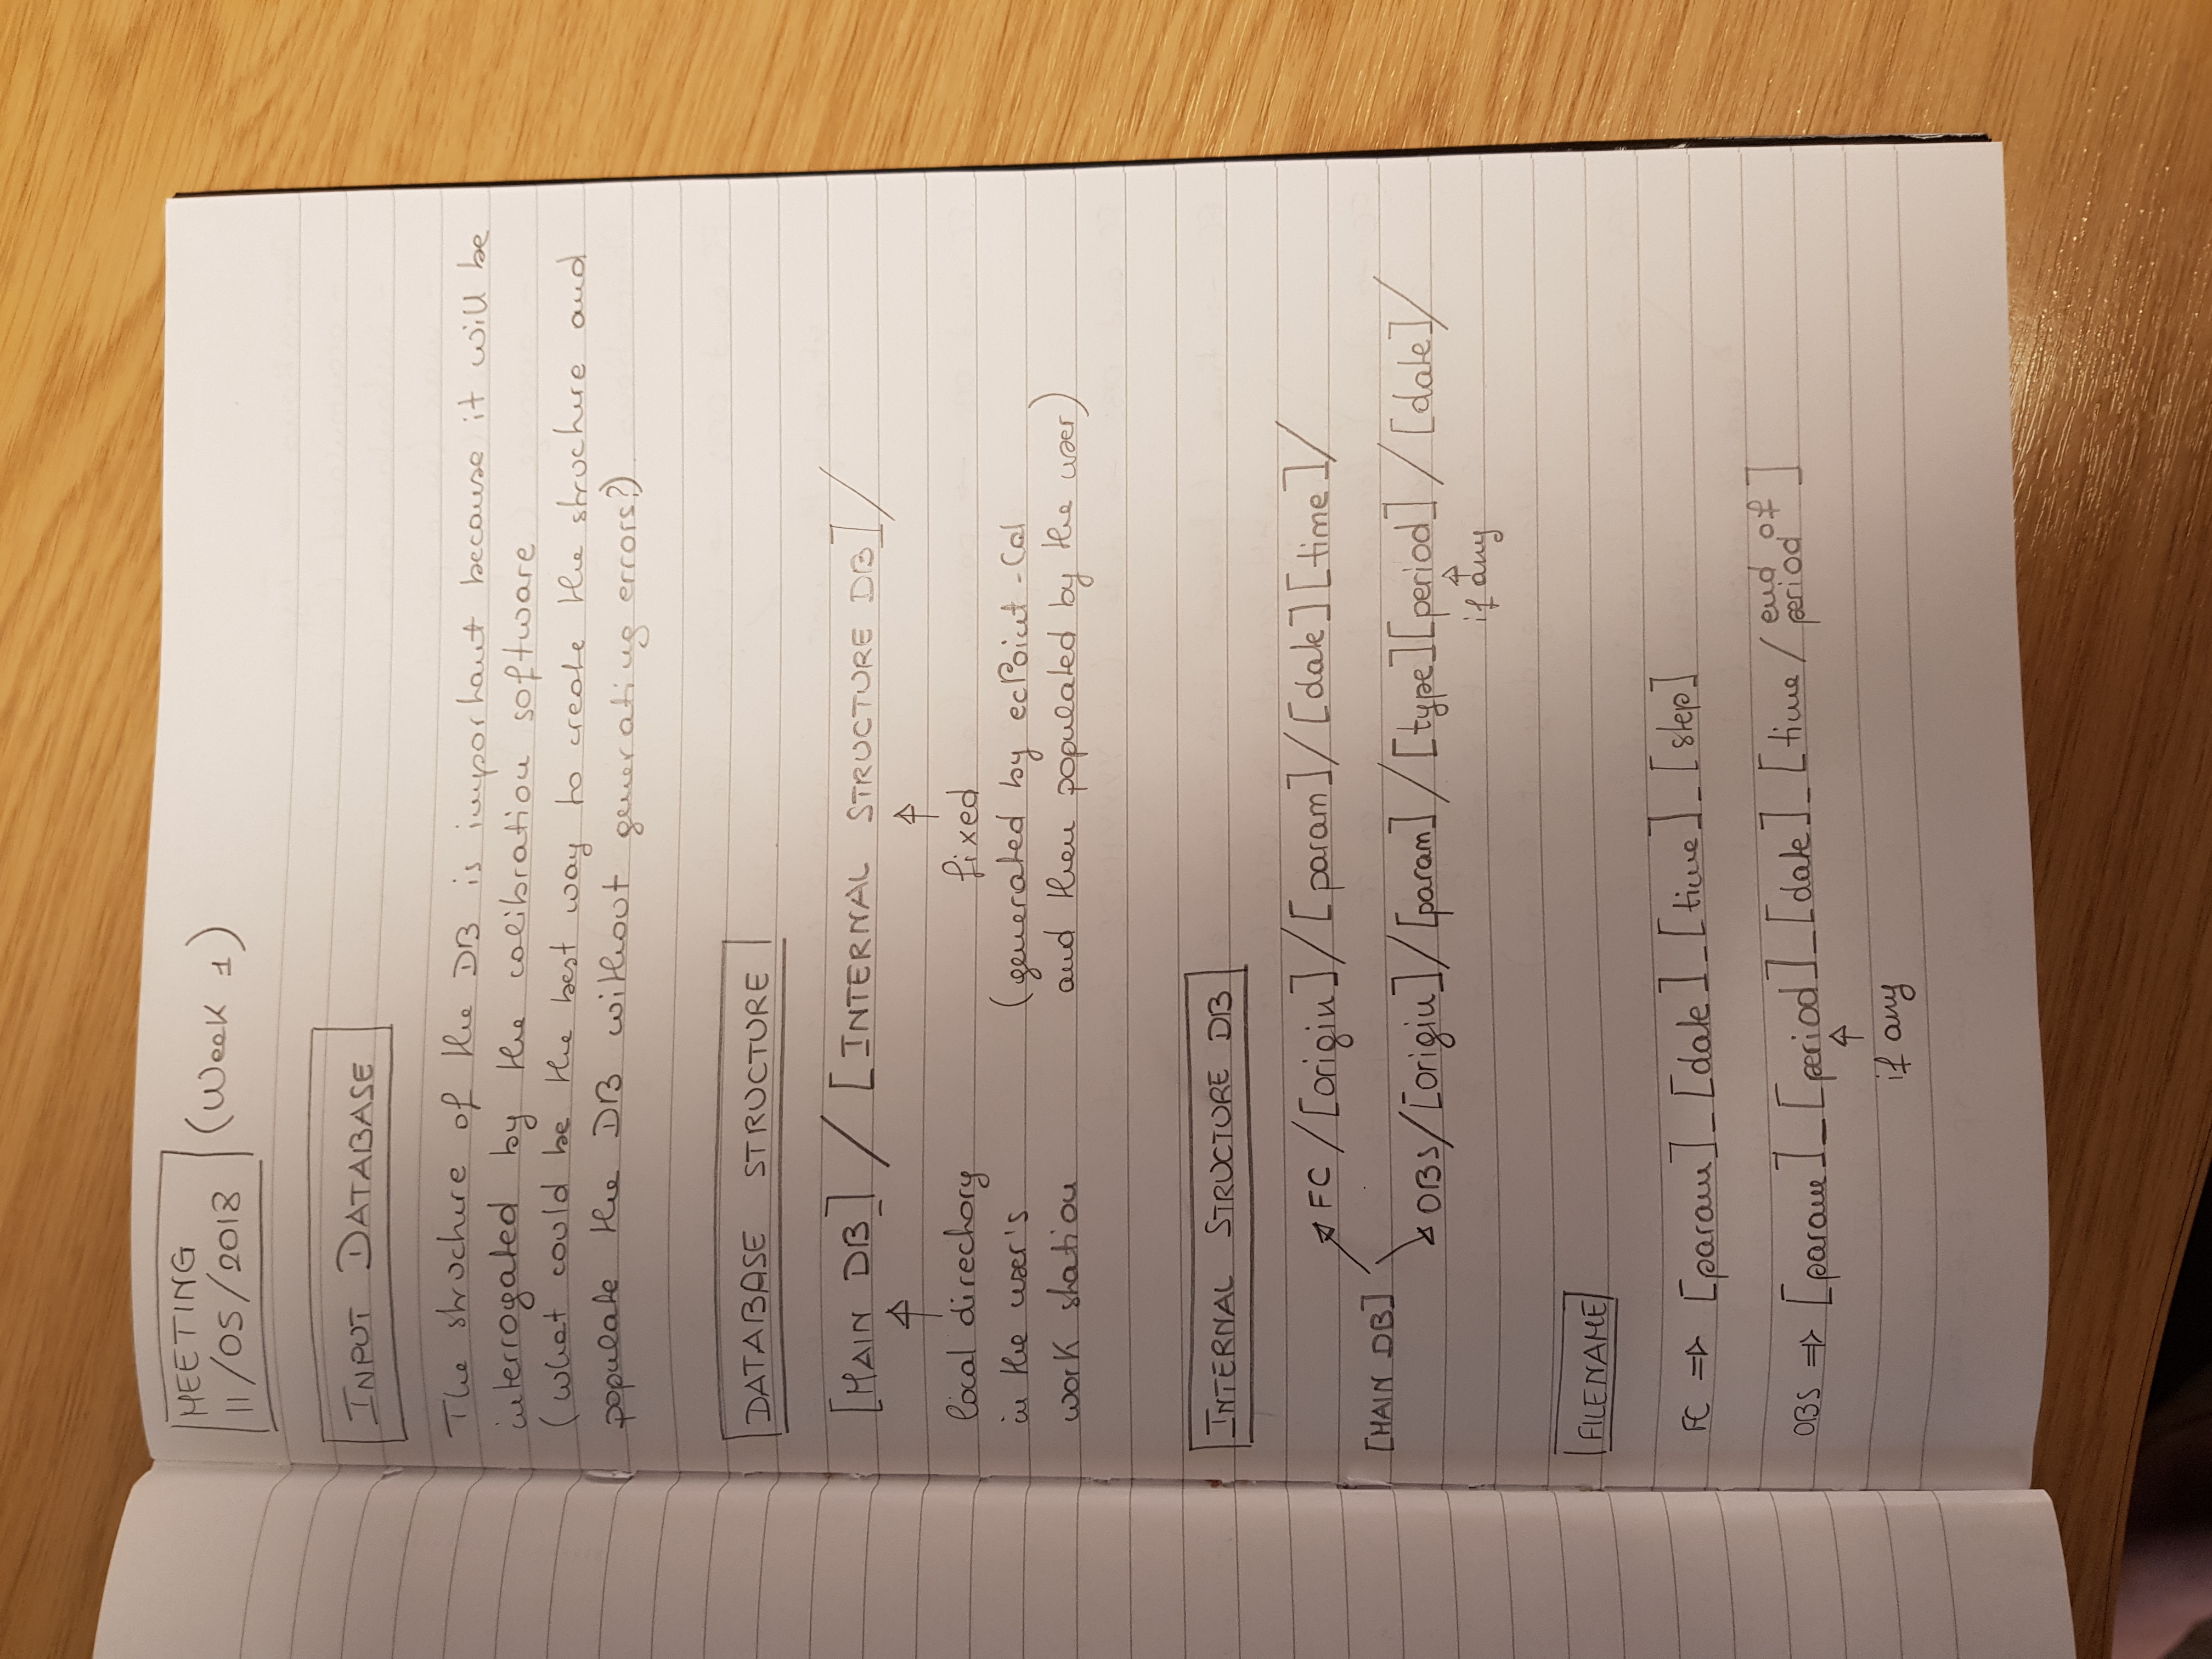 MEETING
11/05/2018 (Week 1)
INPUT DATABASE
The structure of the DB is important because it will be
interrogated by the calibration software
(what could be the best way to create the structure and
populate the DB without generating errors?)
DATABASE STRUCTURE
[MAIN DB] / [INTERNAL STRUCTURE DB]/
local directory fixed
in the user's (generated by ecPoint-Cal
work station and then populated by the user)
INTERNAL STRUCTURE DB
FC /[origin]/[param]/[date][time]/
[MAIN DB]
OBS/[origin]/[param]/[type][period]/[date]/
if any
FILENAME
FC ⇒ [param]_[date]_[time]_[step]
OBS ⇒ [param]_[period]_[date]_[time/end of
period]
if any